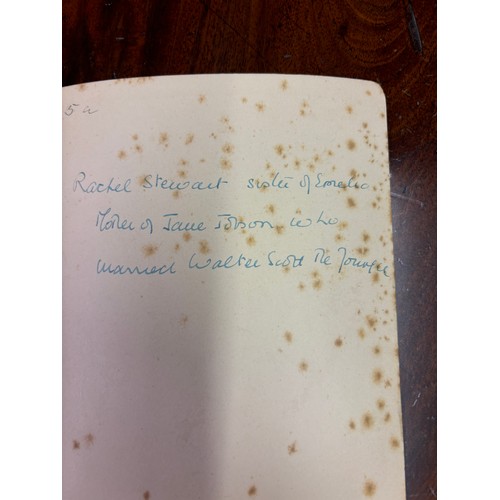 5a
Rachel Stewart sister of
Mother of Jane Jobson who
married Walter Scott the Younger